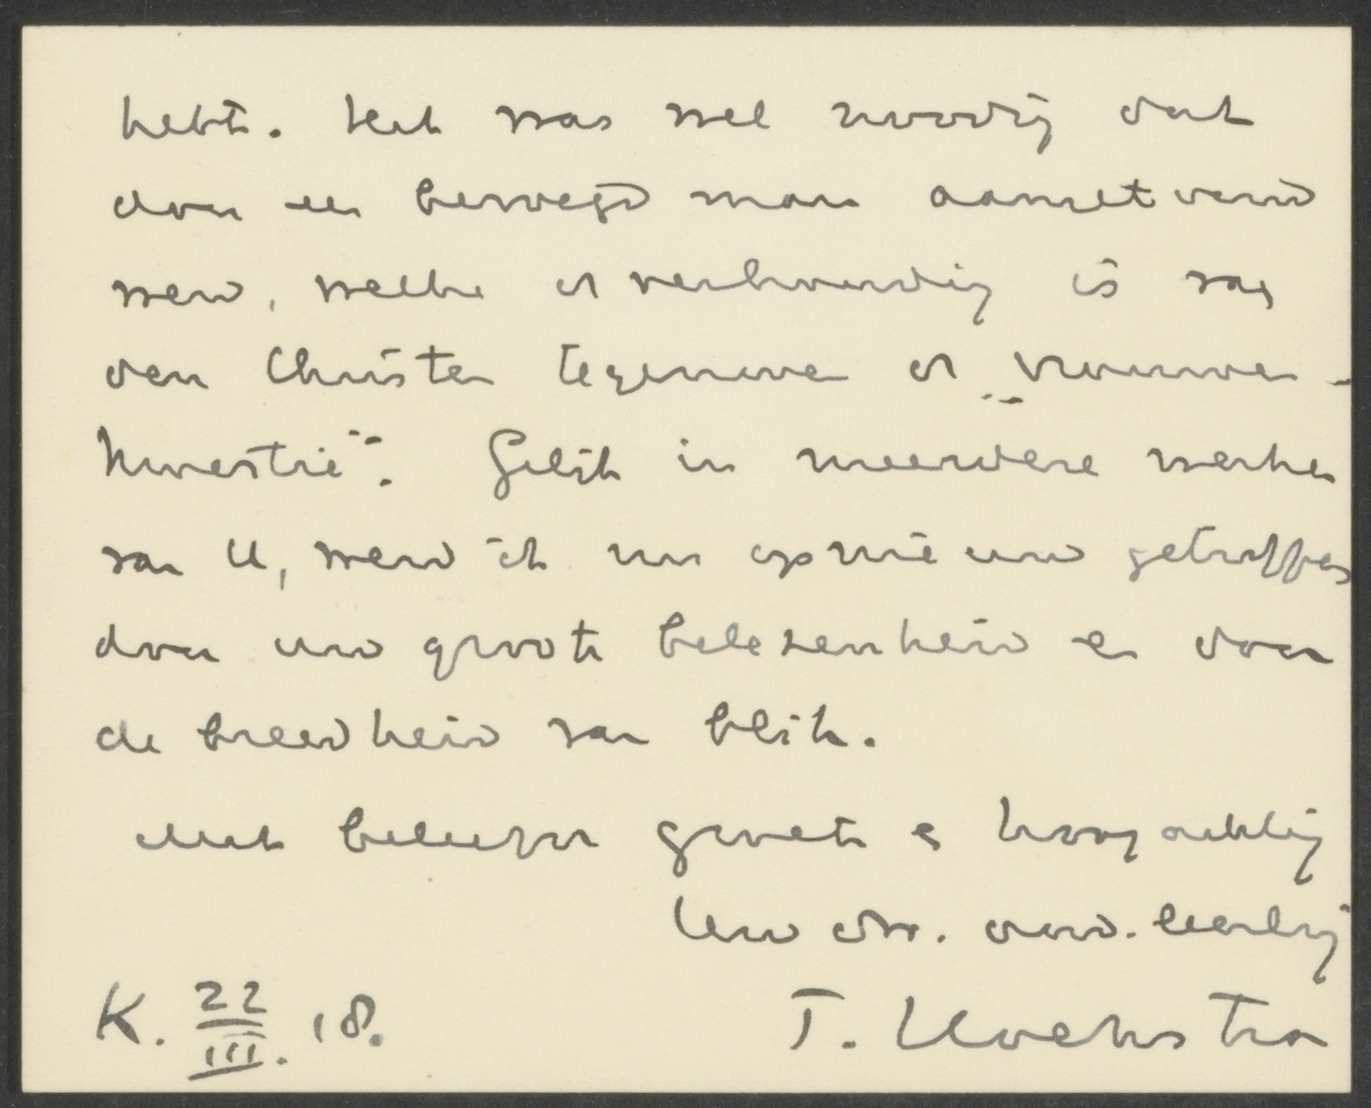 hebt. Het was wel noodig dat
door een bevoegd man aangetoond
werd, welke de verhouding is van
den Christen tegenover de „vrouwen-
kwestie”. Gelijk in meerdere werken
van U, werd ik nu opnieuw getroffen
door uw groote belezenheid en door
de breedheid van blik.
Met beleefde groete & hoogachting
Uw dw. oud-leerling
K. 22/III. 18. T. Hoekstra